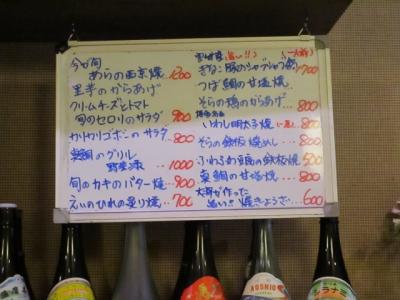 今が旬
あらの西京焼 1200
里芋のからあげ
クリームチーズとトマト
旬のセロリのサラダ 900
カリカリゴボーのサラダ 800
真鯛のグリル
野菜添 1000
旬のカキのバター焼 900
えいのひれの炙り焼 700
旨い!!
きなこ豚のシャブシャブ 700
つぼ鯛の甘塩焼
そらの鶏のからあげ 800
いわし明太子焼
そらの鉄板焼めし 800
ふわふわ豆腐の鉄板焼 500
真鯛の甘塩焼 800
大将が作った
旨い!! 焼きょうざ 600
KOSHIO